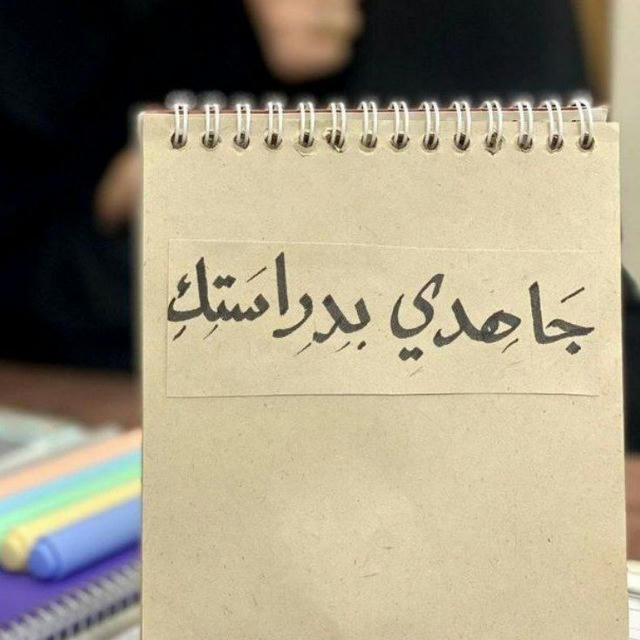 جَاهِدي بِدِرِاسَتِكِ